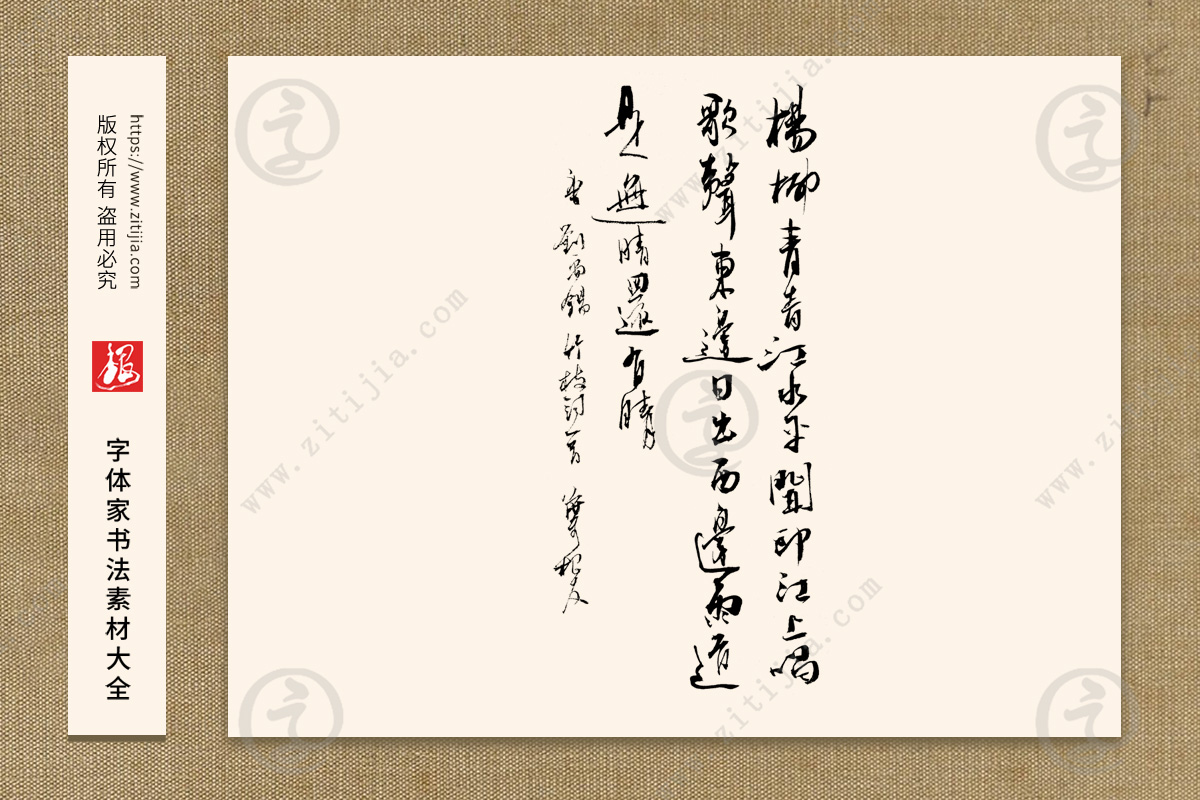 楊柳青青江水平聞郎江上唱
歌聲東邊日出西邊雨道
是無晴還有晴
唐 劉禹錫 竹枝詞一首
https://www.zitijia.com
版权所有 盗用必究
字体家书法素材大全
www.zitijia.com
www.zitijia.com
www.zitijia.com
www.zitijia.com